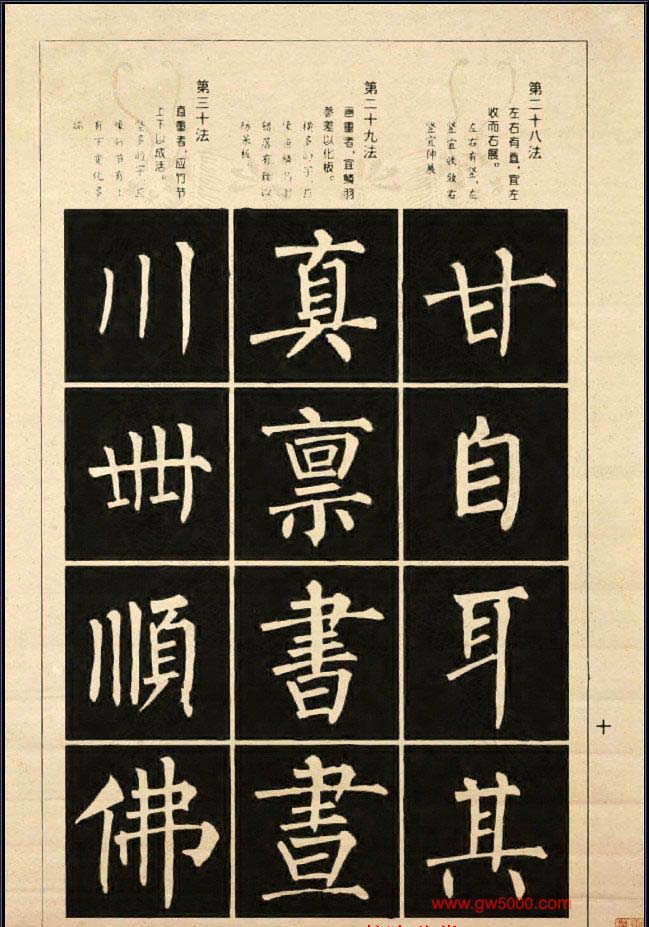 第二十八法
左右有直，宜左
收而右展。
左右有竖，左
竖宜收敛右
竖宜伸展
甘
自
耳
其
第二十九法
画重者，宜鳞羽
参差以化板。
横多的字，应
像鱼鳞鸟羽
错落有致以
防呆板
真
禀
書
晝
第三十法
直重者，应竹节
上下以成活。
竖多的字，应
像竹节有上
有下变化多
端
川
卌
順
佛
十
www.gw5000.com